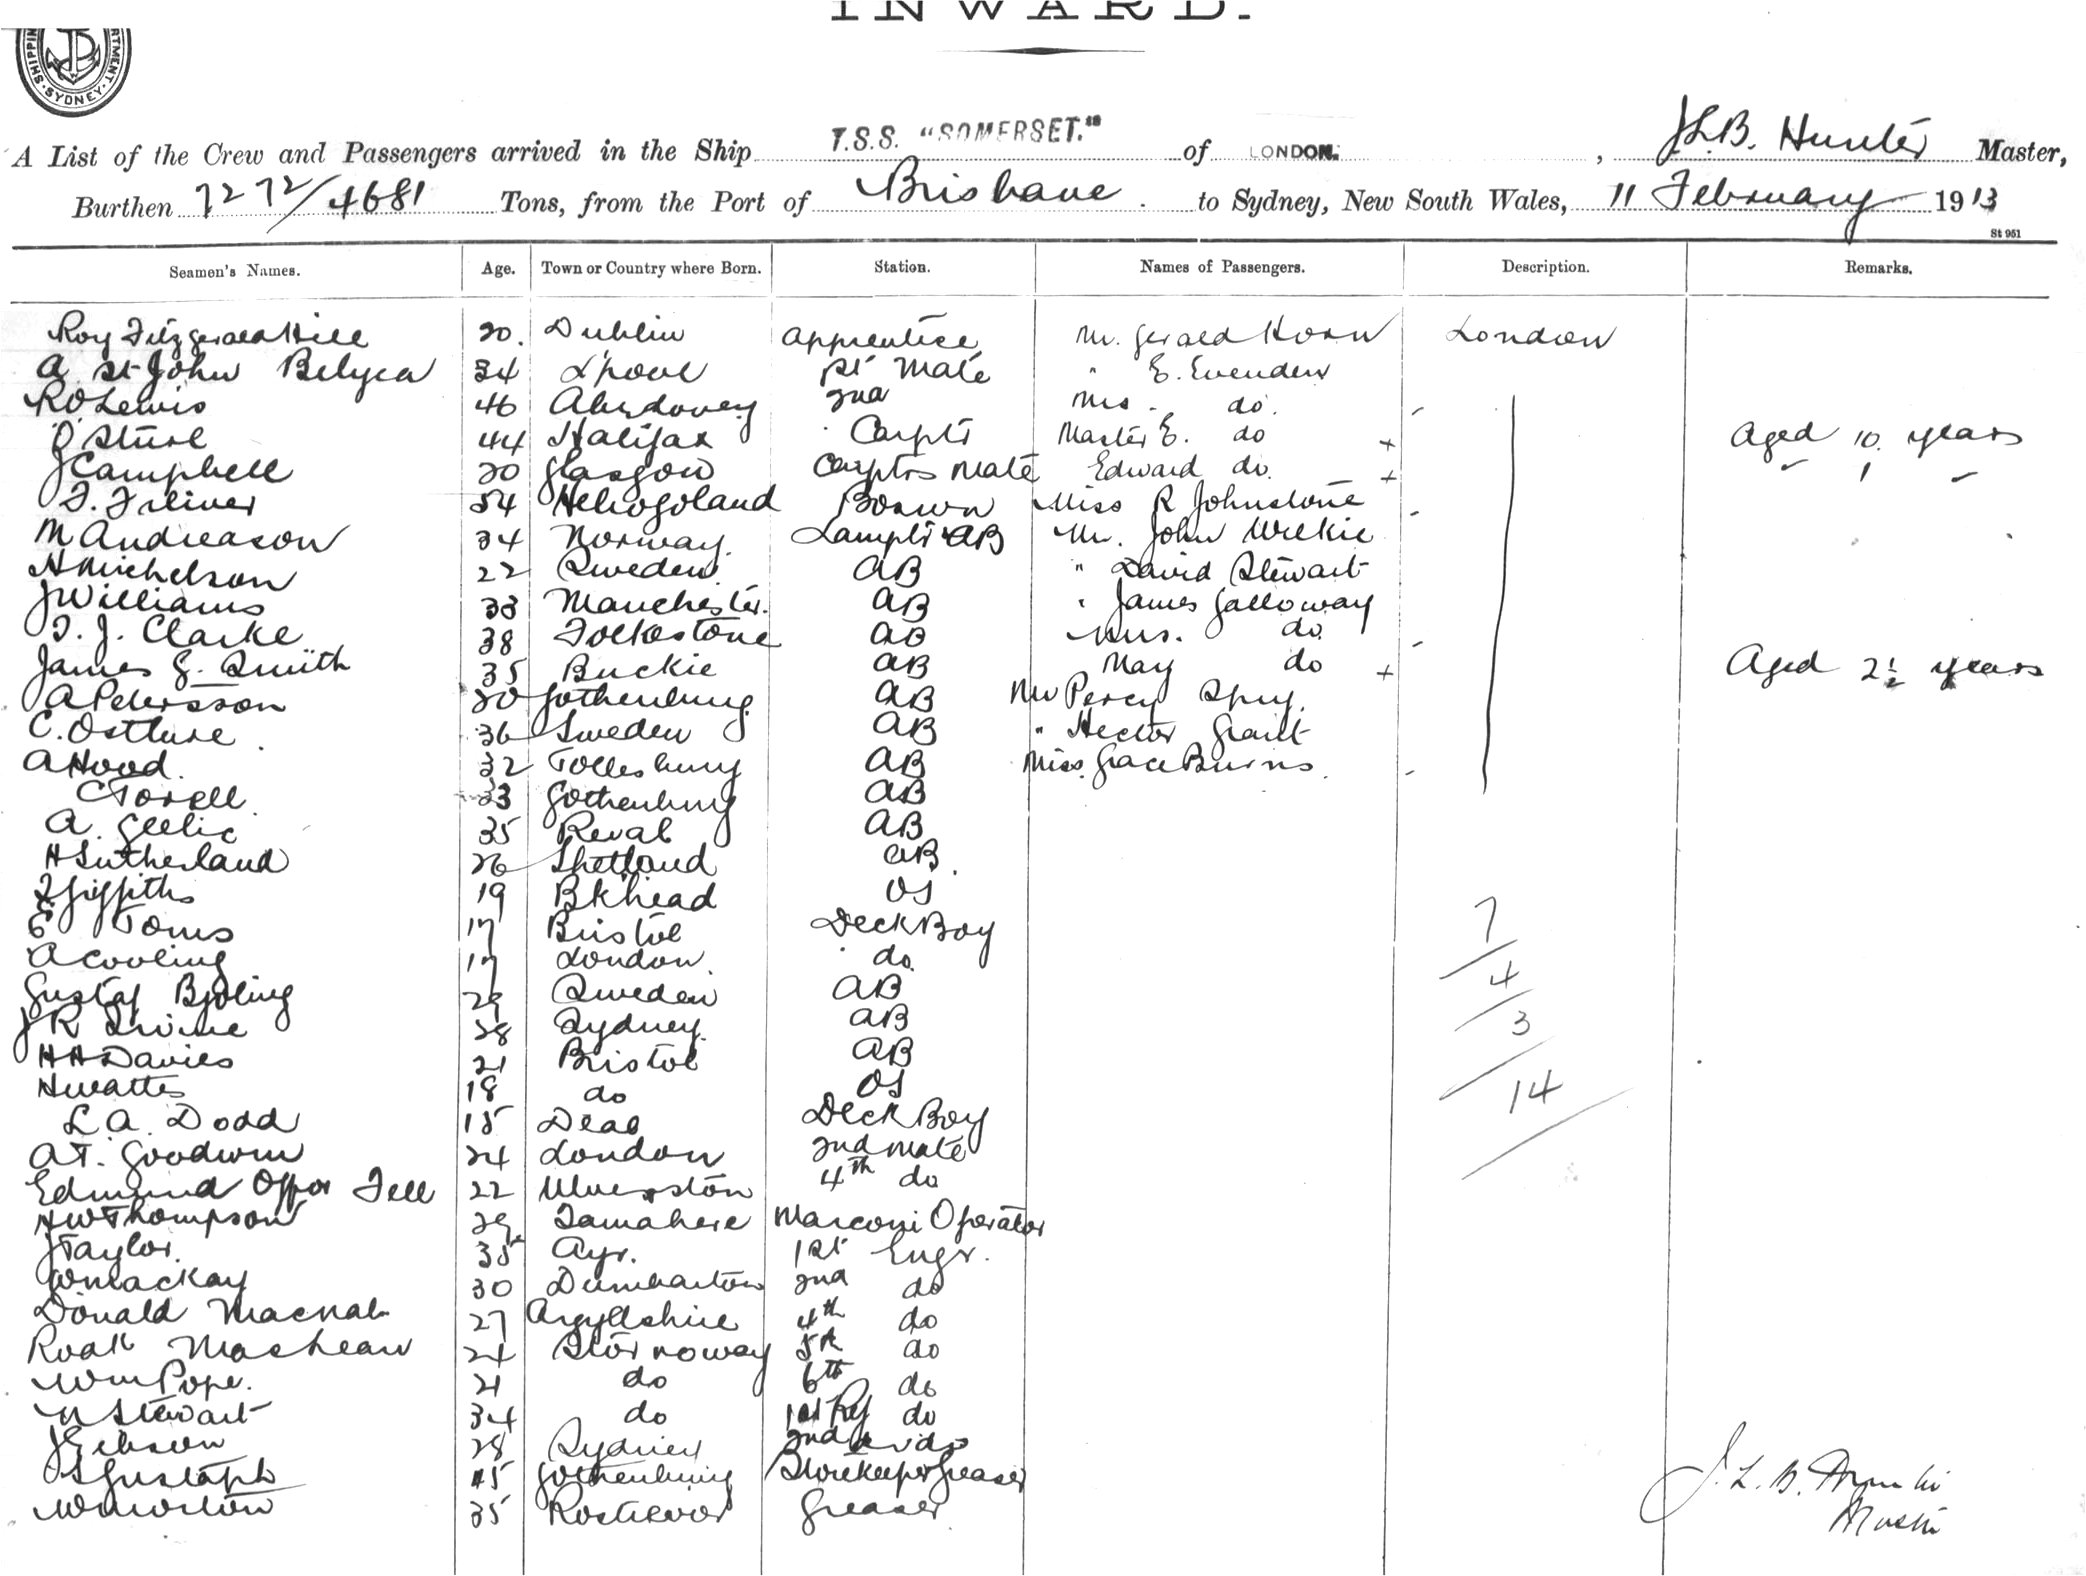 INWARD.
SHIPPING DEPARTMENT. SYDNEY.
A List of the Crew and Passengers arrived in the Ship T.S.S. "SOMERSET." of LONDON. , J.L.B. Hunter Master,
Burthen 7272/4681 Tons, from the Port of Brisbane . to Sydney, New South Wales, 11 February 1913
St 951
Seamen's Names. Age. Town or Country where Born. Station. Names of Passengers. Description. Remarks.
Roy Fitzgerald Hill 20. Dublin Apprentice Mr. Gerald Horn London
A St John Belyea 34 L'pool 1st Mate " E. Evenden
R O Lewis 46 Aberdovey 2nd Mrs. do.
44 Halifax Carptr Master E. do + Aged 10 years
J Campbell 20 Glasgow Carptrs Mate Edward do. + " 1 "
34 Heligoland Boswn Miss R Johnstone
M Andreason 34 Norway. Lamptr & AB Mr. John Wilkie
H Michelson 22 Sweden AB " David Stewart
J Williams 33 Manchester. AB " James Galloway
T. J. Clarke 38 Folkestone AB Mrs. do
James G. Smith 35 Buckie AB May do + Aged 2½ years
A Petersson 20 Gothenburg AB Mr Percy Spry.
C. Ostlure 36 Sweden AB " Hector Grant
A Hood. 32 Tollesbury AB Miss Grace Burns
C Torell 33 Gothenburg AB
A. 35 Reval AB
H Sutherland 26 Shetland AB.
Griffiths 19 Bk'head OS 7
E Toms 17 Bristol Deck Boy
A Cooling 17 London. do. 4
Gustaf Bjoling 29 Sweden AB
J R Irvine 28 Sydney. AB 3
H H Davies 21 Bristol AB
H Watts 18 do OS 14
L A. Dodd 15 Deal Deck Boy
A T. Goodwin 24 London 2nd Mate
Edmund Offor Fell 22 Ulverston 4th do
H W Thompson 29 Tamahere Marconi Operator
J Taylor. 35 Ayr. 1st Engr.
W Mackay 30 Dumbarton 2nd do
Donald Macnab 27 Argyllshire 4th do
Rodk Maclean 24 Stornoway 5th do
Wm Pope. 21 do 6th do
N Stewart 34 do 1st Rfg do
J Gibson 28 Sydney 2nd do
Gustaph 45 Gothenburg Storekeeper Greaser
W Morton 35 Rostrevor Greaser
J. L. B. Hunter
Master